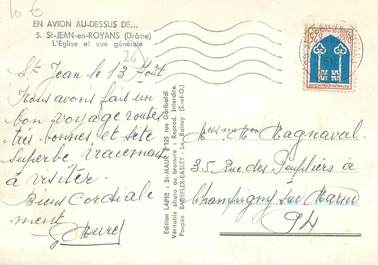 10 €
EN AVION AU-DESSUS DE...
5. St-JEAN-en-ROYANS (Drôme)
L'Eglise et vue générale
(26)
St Jean le 13 Août
Nous avons fait un
bon voyage route
très bonnes et sète
superbe vraiement
à visiter.
Biens Cordiale
ment
Edition LAPIE : St-MAUR 125 rue Garibaldi
Véritable photo au bromure : Reprod. Interdite.
Magnaval
35, rue des Peupliers à
Champigny sur Marne
94